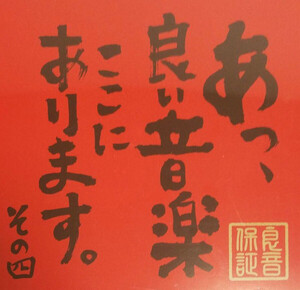 あっ、
良い音楽
ここに
あります。
その四
良音
保証